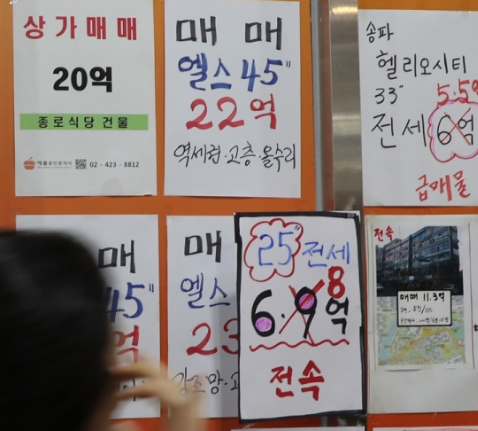 상가매매
20억
종로식당 건물
02 - 423 - 8812
매 매
엘스 45"
22억
역세권·고층·올수리
송파
헬리오시티
33"
5.5억
전세 6억
급매물
매
45"
억
매
엘스
23
25" 전세
8
6.9억
전속
전속
매매 11.3억